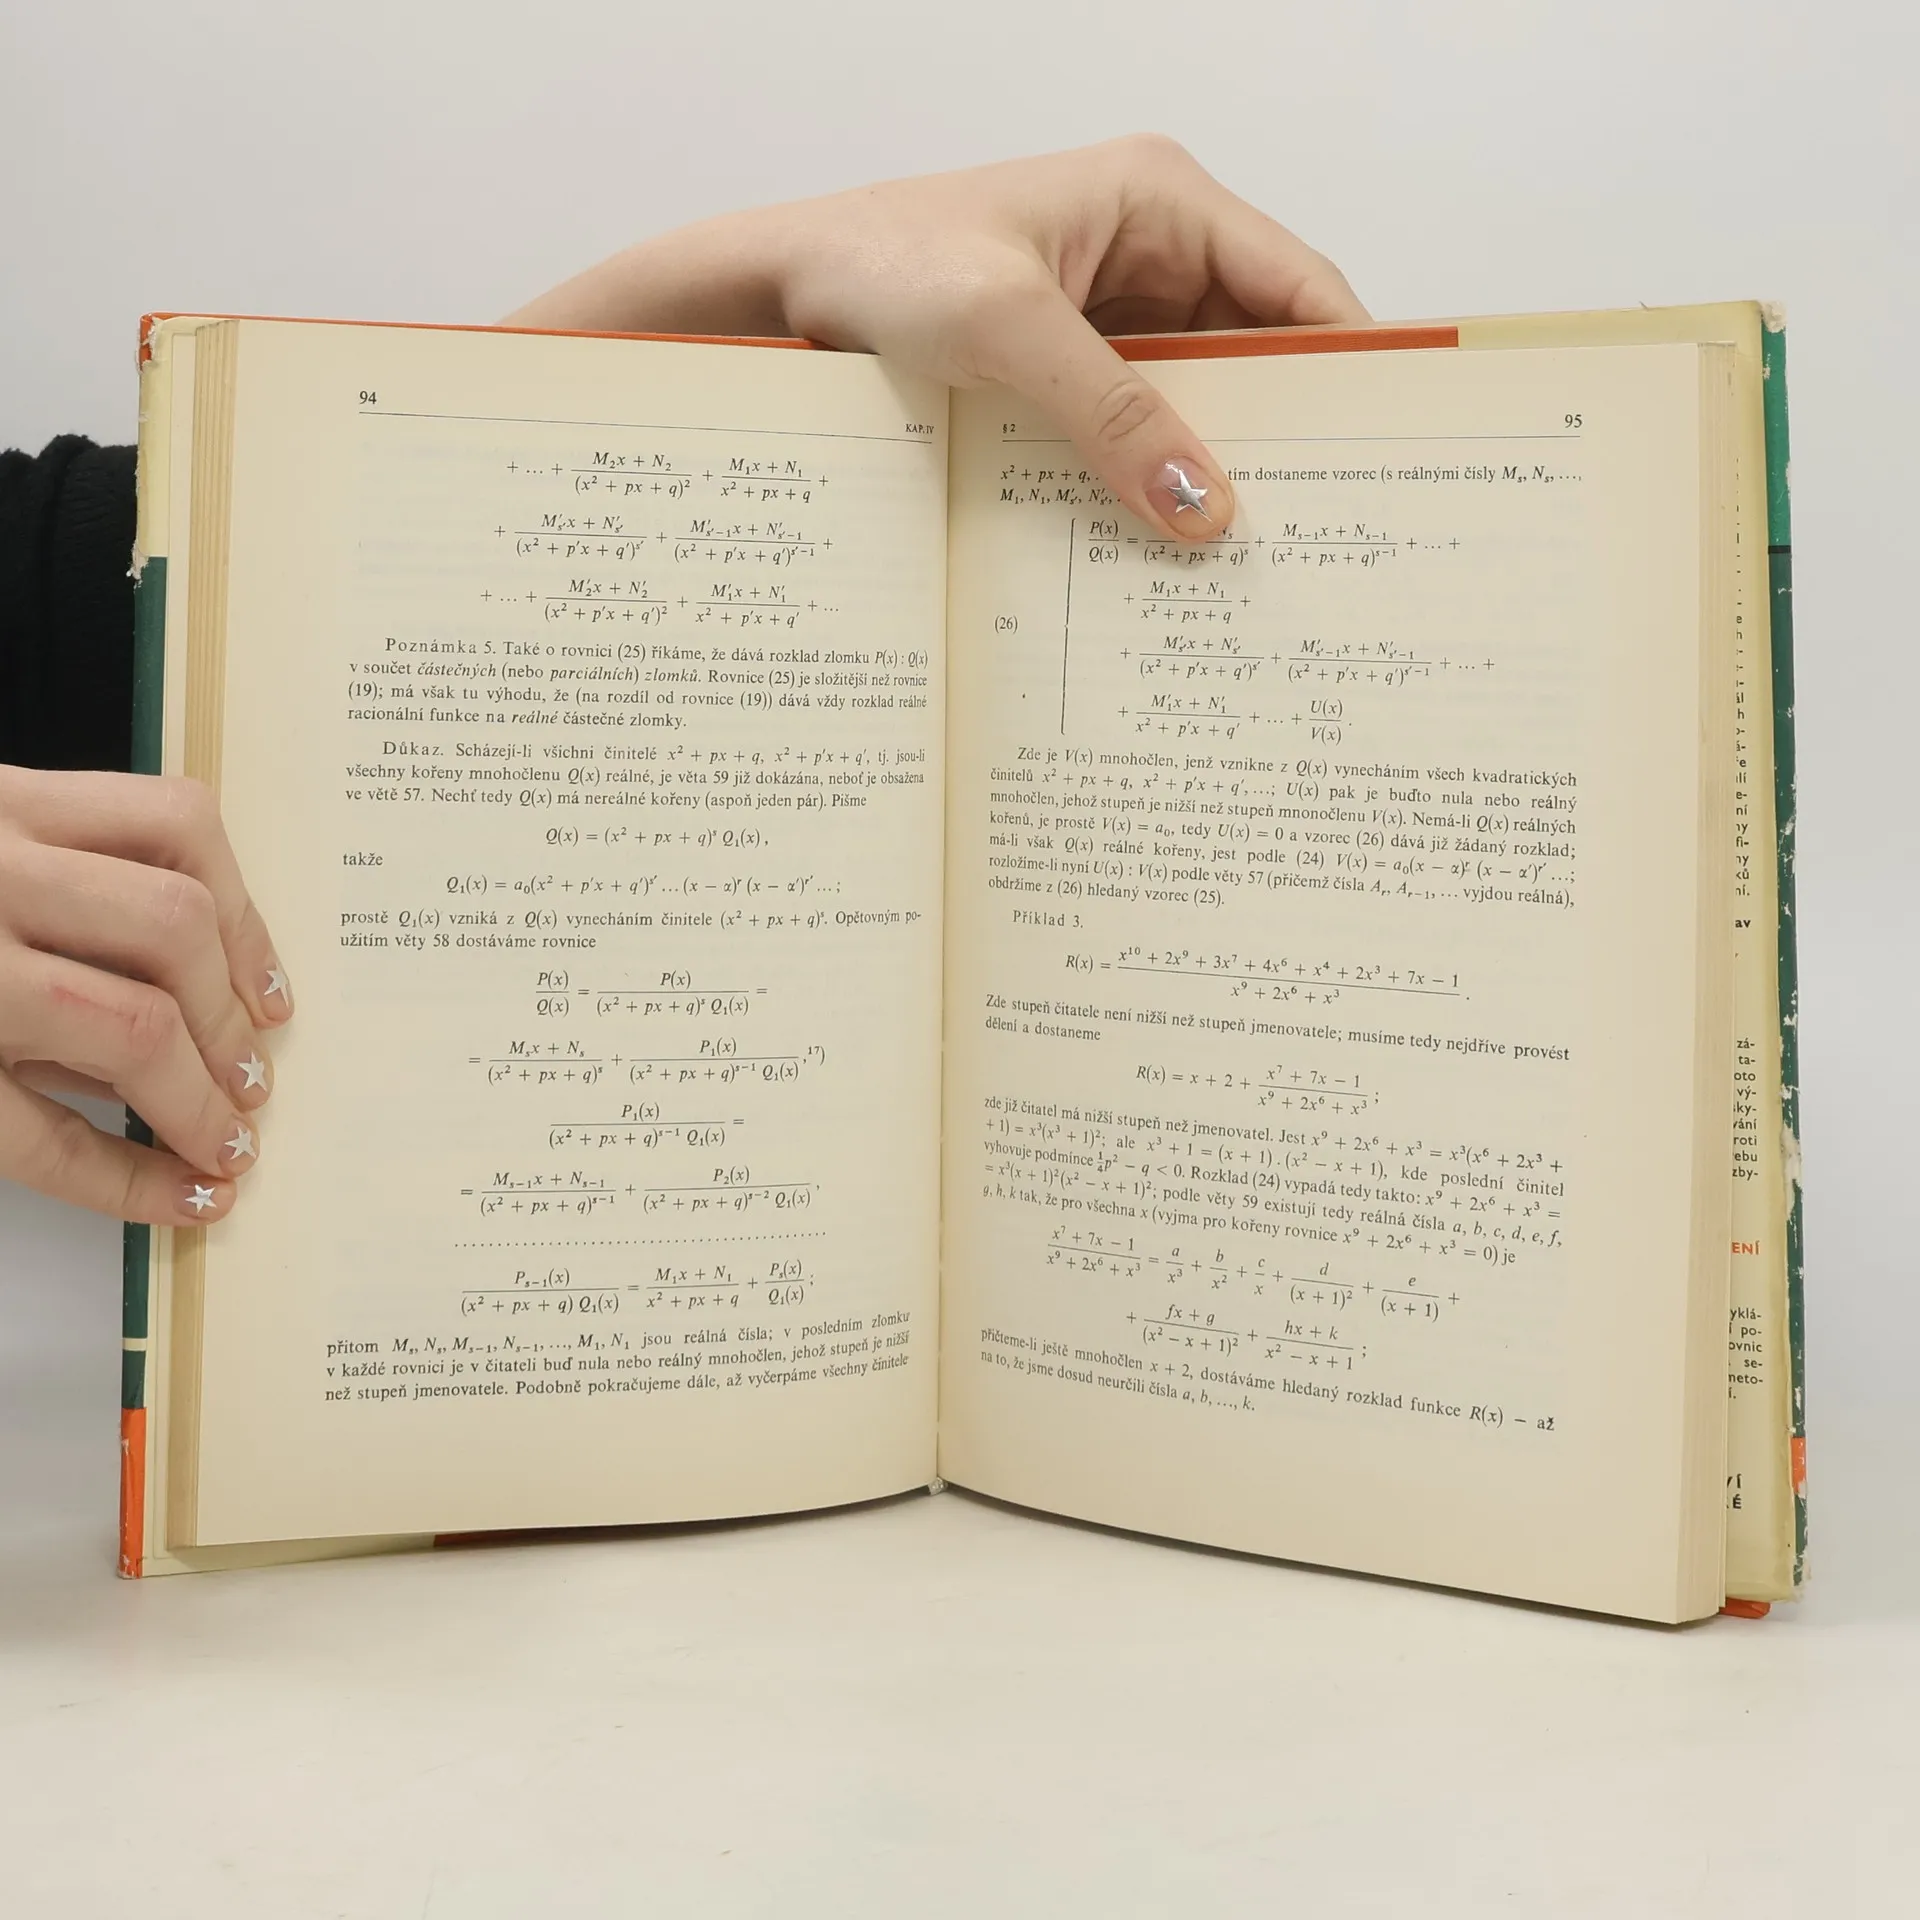 94
KAP. IV
+ ... + (M₂x + N₂)/(x² + px + q)² + (M₁x + N₁)/(x² + px + q) +
+ (M′ₛ′x + N′ₛ′)/(x² + p′x + q′)ˢ′ + (M′ₛ′₋₁x + N′ₛ′₋₁)/(x² + p′x + q′)ˢ′⁻¹ +
+ ... + (M′₂x + N′₂)/(x² + p′x + q′)² + (M′₁x + N′₁)/(x² + p′x + q′) + ...
Poznámka 5. Také o rovnici (25) říkáme, že dává rozklad zlomku P(x) : Q(x)
v součet částečných (nebo parciálních) zlomků. Rovnice (25) je složitější než rovnice
(19); má však tu výhodu, že (na rozdíl od rovnice (19)) dává vždy rozklad reálné
racionální funkce na reálné částečné zlomky.
Důkaz. Scházejí-li všichni činitelé x² + px + q, x² + p′x + q′, tj. jsou-li
všechny kořeny mnohočlenu Q(x) reálné, je věta 59 již dokázána, neboť je obsažena
ve větě 57. Nechť tedy Q(x) má nereálné kořeny (aspoň jeden pár). Pišme
Q(x) = (x² + px + q)ˢ Q₁(x),
takže
Q₁(x) = a₀(x² + p′x + q′)ˢ′ ... (x − α)ʳ (x − α′)ʳ′ ... ;
prostě Q₁(x) vzniká z Q(x) vynecháním činitele (x² + px + q)ˢ. Opětovným po-
užitím věty 58 dostáváme rovnice
P(x)/Q(x) = P(x)/((x² + px + q)ˢ Q₁(x)) =
= (Mₛx + Nₛ)/(x² + px + q)ˢ + P₁(x)/((x² + px + q)ˢ⁻¹ Q₁(x)),¹⁷)
P₁(x)/((x² + px + q)ˢ⁻¹ Q₁(x)) =
= (Mₛ₋₁x + Nₛ₋₁)/(x² + px + q)ˢ⁻¹ + P₂(x)/((x² + px + q)ˢ⁻² Q₁(x)),
. . . . . . . . . . . . . . . . . . . . . . . . . . . . . .
Pₛ₋₁(x)/((x² + px + q) Q₁(x)) = (M₁x + N₁)/(x² + px + q) + Pₛ(x)/Q₁(x);
přitom Mₛ, Nₛ, Mₛ₋₁, Nₛ₋₁, ..., M₁, N₁ jsou reálná čísla; v posledním zlomku
v každé rovnici je v čitateli buď nula nebo reálný mnohočlen, jehož stupeň je nižší
než stupeň jmenovatele. Podobně pokračujeme dále, až vyčerpáme všechny činitele
§ 2
95
x² + px + q, . tím dostaneme vzorec (s reálnými čísly Mₛ, Nₛ, ...,
M₁, N₁, M′ₛ′, N′ₛ′, .
P(x)/Q(x) = Nₛ/(x² + px + q)ˢ + (Mₛ₋₁x + Nₛ₋₁)/(x² + px + q)ˢ⁻¹ + ... +
+ (M₁x + N₁)/(x² + px + q) +
(26)
+ (M′ₛ′x + N′ₛ′)/(x² + p′x + q′)ˢ′ + (M′ₛ′₋₁x + N′ₛ′₋₁)/(x² + p′x + q′)ˢ′⁻¹ + ... +
+ (M′₁x + N′₁)/(x² + p′x + q′) + ... + U(x)/V(x).
Zde je V(x) mnohočlen, jenž vznikne z Q(x) vynecháním všech kvadratických
činitelů x² + px + q, x² + p′x + q′, ...; U(x) pak je buďto nula nebo reálný
mnohočlen, jehož stupeň je nižší než stupeň mnonočlenu V(x). Nemá-li Q(x) reálných
kořenů, je prostě V(x) = a₀, tedy U(x) = 0 a vzorec (26) dává již žádaný rozklad;
má-li však Q(x) reálné kořeny, jest podle (24) V(x) = a₀(x − α)ʳ (x − α′)ʳ′ ...;
rozložíme-li nyní U(x) : V(x) podle věty 57 (přičemž čísla Aᵣ, Aᵣ₋₁, ... vyjdou reálná),
obdržíme z (26) hledaný vzorec (25).
Příklad 3.
R(x) = (x¹⁰ + 2x⁹ + 3x⁷ + 4x⁶ + x⁴ + 2x³ + 7x − 1)/(x⁹ + 2x⁶ + x³).
Zde stupeň čitatele není nižší než stupeň jmenovatele; musíme tedy nejdříve provést
dělení a dostaneme
R(x) = x + 2 + (x⁷ + 7x − 1)/(x⁹ + 2x⁶ + x³);
zde již čitatel má nižší stupeň než jmenovatel. Jest x⁹ + 2x⁶ + x³ = x³(x⁶ + 2x³ +
+ 1) = x³(x³ + 1)²; ale x³ + 1 = (x + 1) . (x² − x + 1), kde poslední činitel
vyhovuje podmínce ¼p² − q < 0. Rozklad (24) vypadá tedy takto: x⁹ + 2x⁶ + x³ =
= x³(x + 1)²(x² − x + 1)²; podle věty 59 existují tedy reálná čísla a, b, c, d, e, f,
g, h, k tak, že pro všechna x (vyjma pro kořeny rovnice x⁹ + 2x⁶ + x³ = 0) je
(x⁷ + 7x − 1)/(x⁹ + 2x⁶ + x³) = a/x³ + b/x² + c/x + d/(x + 1)² + e/(x + 1) +
+ (fx + g)/(x² − x + 1)² + (hx + k)/(x² − x + 1);
přičteme-li ještě mnohočlen x + 2, dostáváme hledaný rozklad funkce R(x) − až
na to, že jsme dosud neurčili čísla a, b, ..., k.